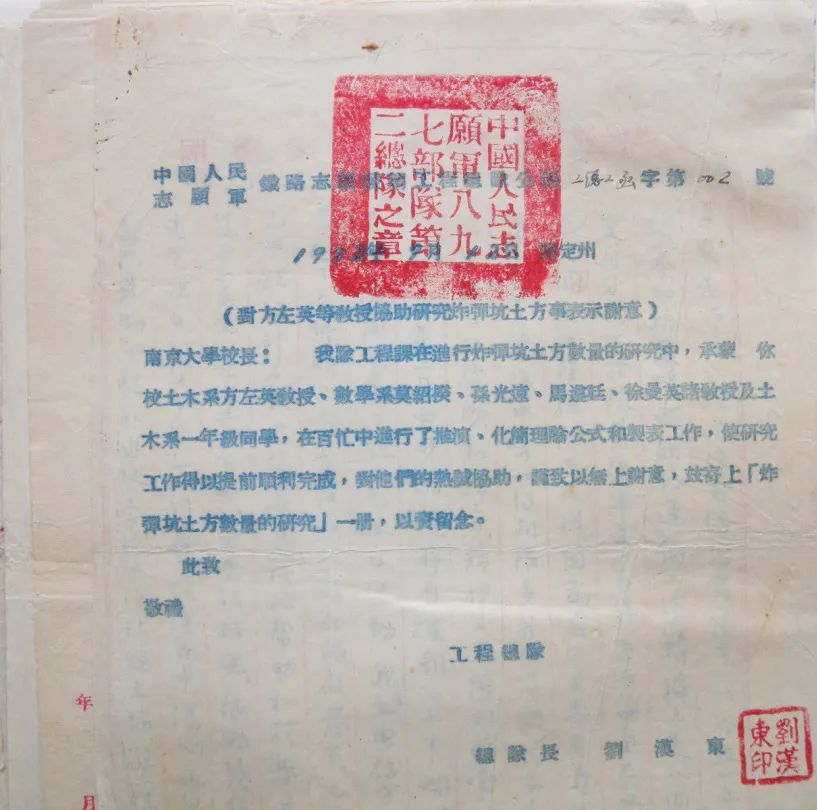 中國人民志
願軍八九
七部隊等
二總隊之章
中國人民
志願軍
鐵路志 工程總隊 字第002號
195 年 月 定州
(對方左英等教授協助研究炸彈坑土方事表示謝意)
南京大學校長: 我隊工程課在進行炸彈坑土方數量的研究中,承蒙 你
校土木系方左英教授、數學系莫紹揆、孫光遠、馬遠廷、徐曼英諸教授及土
木系一年級同學,在百忙中進行了推演、化簡理論公式和製表工作,使研究
工作得以提前順利完成,對他們的熱誠協助,謹致以無上謝意,玆寄上「炸
彈坑土方數量的研究」一册,以資留念。
此致
敬禮
工程總隊
總隊長 劉漢東
劉漢
東印
年
月